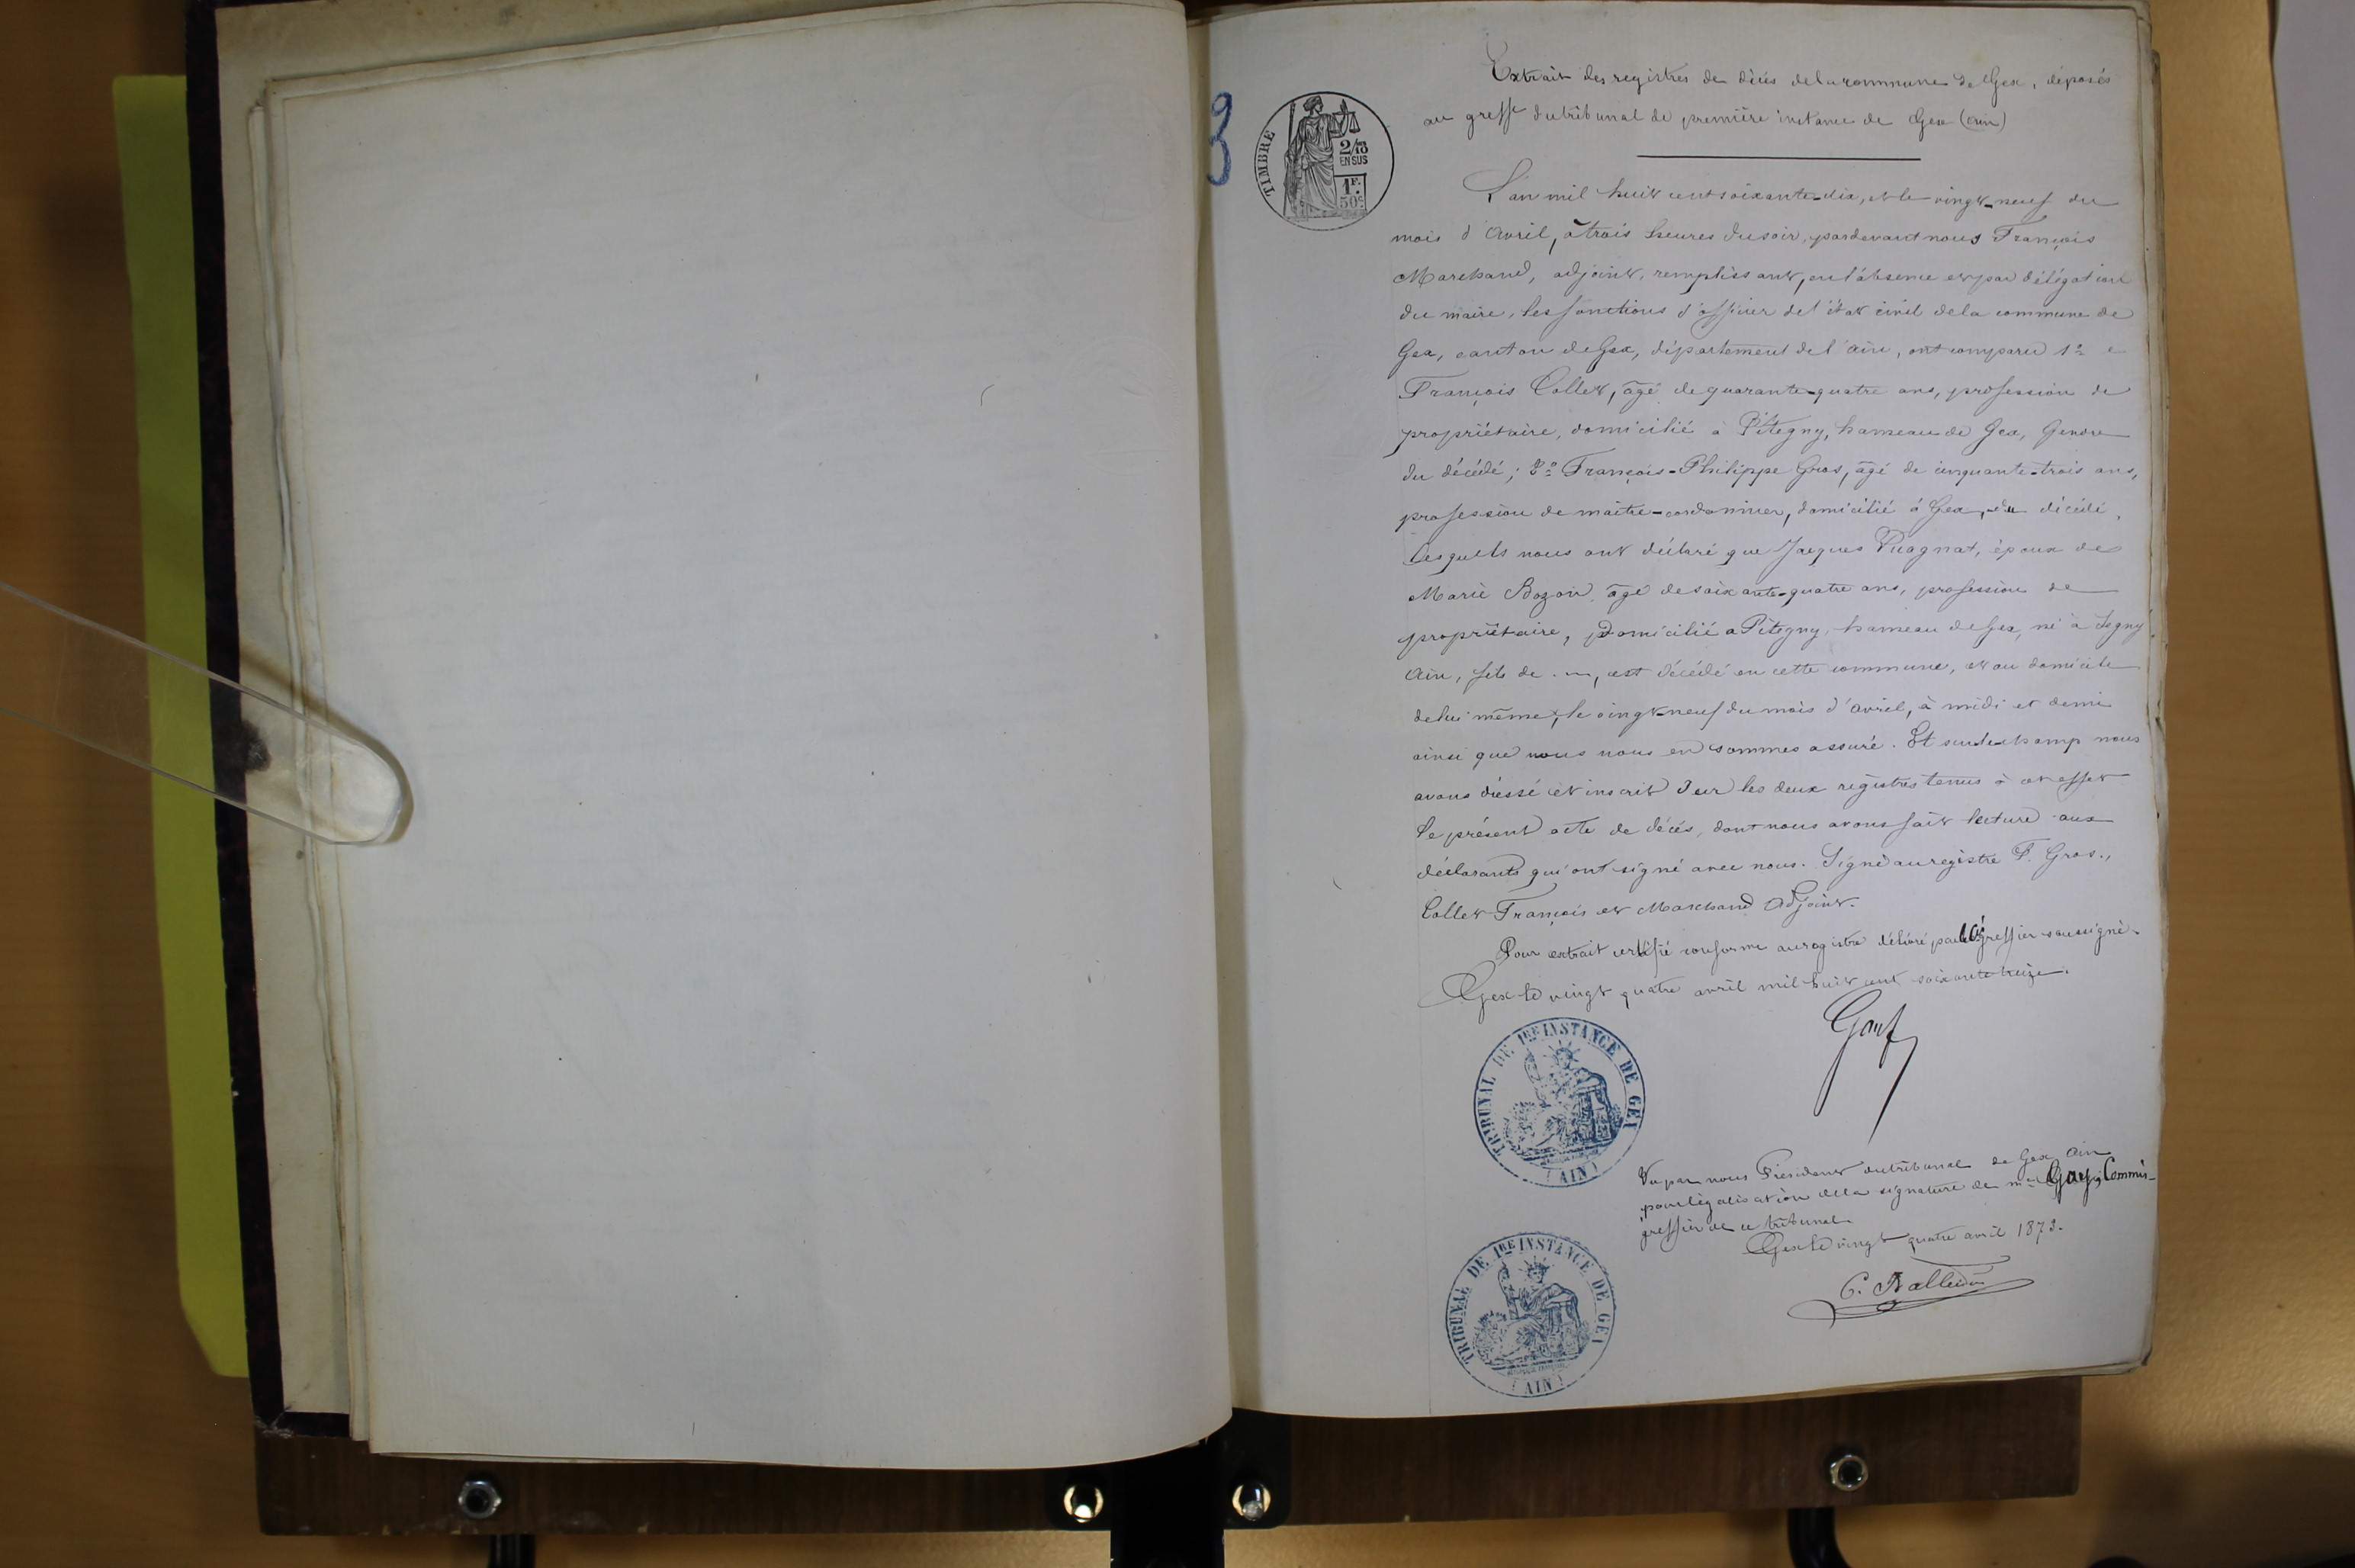 3
TIMBRE
2/10
EN SUS
1F.
50c
Extrait des registres de décès de la commune de Gex, déposés
au greffe du tribunal de première instance de Gex (Ain)
L'an mil huit cent soixante-dix, et le vingt-neuf du
mois d'Avril, à trois heures du soir, pardevant nous François
Marchand, adjoint, remplissant, en l'absence et par délégation
du maire, les fonctions d'officier de l'état civil de la commune de
Gex, canton de Gex, département de l'Ain, ont comparu 1º
François Collet, âgé de quarante-quatre ans, profession de
propriétaire, domicilié à Pitegny, hameau de Gex, Gendre
du décédé; 2º François-Philippe Gros, âgé de cinquante-trois ans,
profession de maître-cordonnier, domicilié à Gex, du décédé,
lesquels nous ont déclaré que Jacques Puagnat, époux de
Marie Bozon, âgé de soixante-quatre ans, profession de
propriétaire, Domicilié a Pitegny, hameau de Gex, né à Segny
Ain, fils de . —, est décédé en cette commune, et au domicile
de lui même, le vingt-neuf du mois d'avril, à midi et demi
ainsi que nous nous en sommes assuré. Et sur le champ nous
avons dressé et inscrit sur les deux registres tenus à cet effet
le présent acte de décès, dont nous avons fait lecture aux
déclarants qui ont signé avec nous. Signé au registre F. Gros.,
Collet François et Marchand Adjoint.
Pour extrait certifié conforme au registre délivré par le Cis greffier soussigné.
Gex le vingt quatre avril mil huit cent soixante treize.
TRIBUNAL DE 1RE INSTANCE DE GEX
(AIN)
Vu par nous Président du tribunal de Gex Ain
pour légalisation de la signature de me Gay, Commis-
greffier de ce tribunal.
Gex le vingt quatre avril 1873.
TRIBUNAL DE 1RE INSTANCE DE GEX
(AIN)